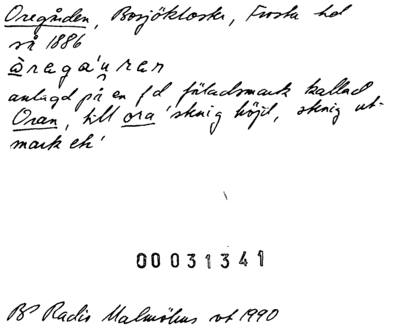 Oregården, Bosjökloster, Frosta hd
så 1886
àregaʹu̯ran
anlagd på en f d fäladsmark kallad
Oran, till ora 'stenig höjd, stenig ut-
mark etc'
00031341
BP Radio Malmöhus vt 1990